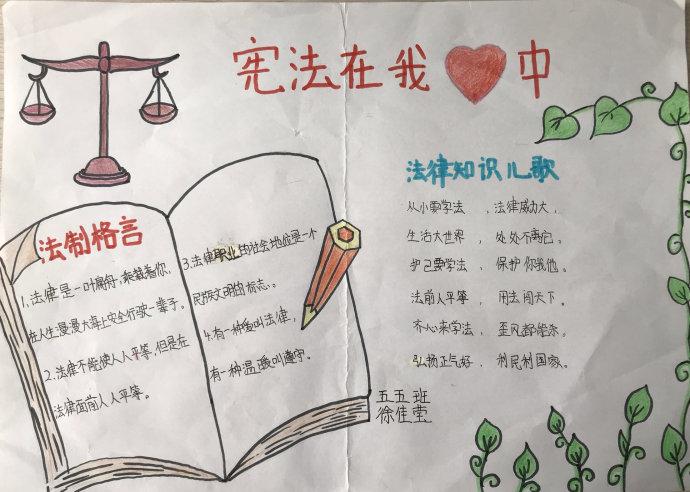 宪法在我 中
法制格言
1.法律是一叶扁舟，乘载着你，
在人生漫漫大海上安全行驶一辈子。
2.法律不能使人人平等，但是在
法律面前人人平等。
3.法律职业的社会地位是一个
民族文明的标志。
4.有一种爱叫法律，
有一种温暖叫遵守。
法律知识儿歌
从小要学法，法律威力大，
生活大世界，处处不离它。
护己要学法，保护你我他。
法前人平等，用法闯天下。
齐心来学法，歪风都能杀。
弘扬正气好，利民利国家。
五五班
徐佳莹